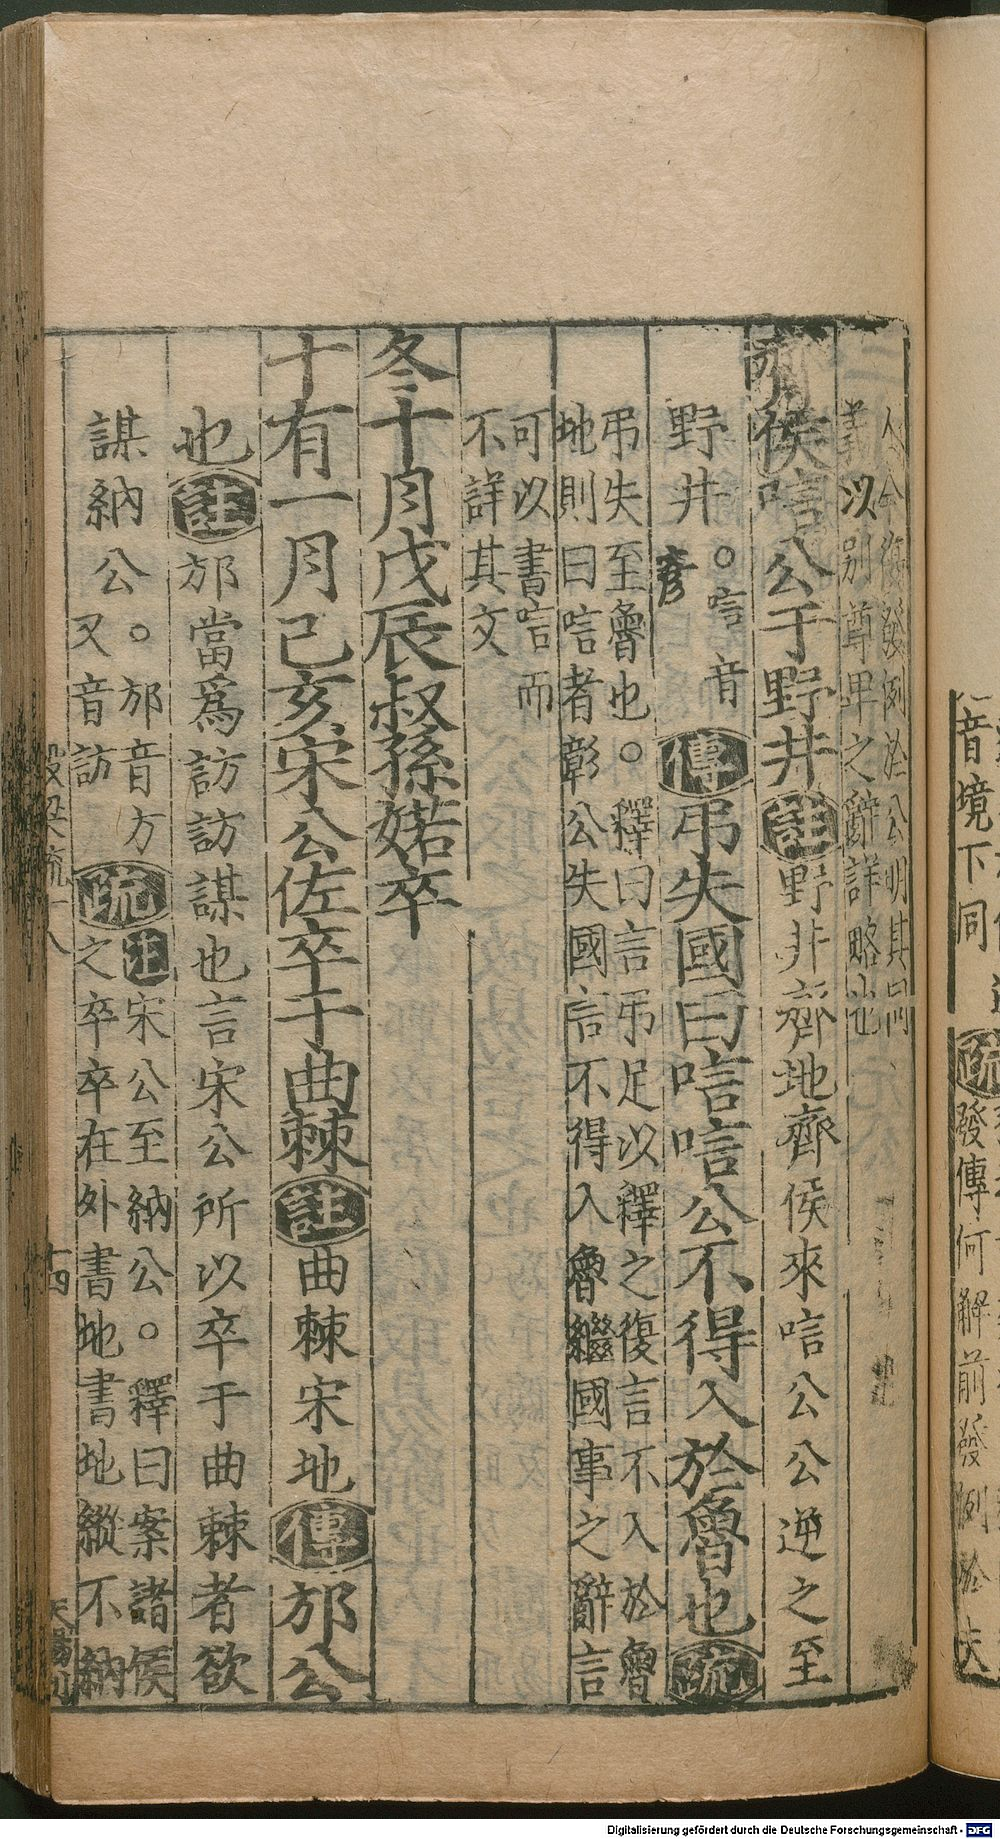 人今復發例於公明其同
義以別尊卑之辭詳略也
齊侯唁公于野井註野井齊地齊侯來唁公公逆之至
野井。唁音
彥
傳弔失國曰唁唁公不得入於魯也疏
弔失至魯也。釋曰言弔足以釋之復言不入於魯
地則曰唁者彰公失國言不得入魯繼國事之辭言
可以書唁而
不詳其文
冬十月戊辰叔孫婼卒
十有一月己亥宋公佐卒于曲棘註曲棘宋地傳邡公
也註邡當爲訪訪謀也言宋公所以卒于曲棘者欲
謀納公。邡音方
又音訪
疏註宋公至納公。釋曰案諸侯
之卒卒在外書地書地縱不納
穀梁疏十八
十四
音境下同
疏
發傳何解前發例於
Digitalisierung gefördert durch die Deutsche Forschungsgemeinschaft - DFG